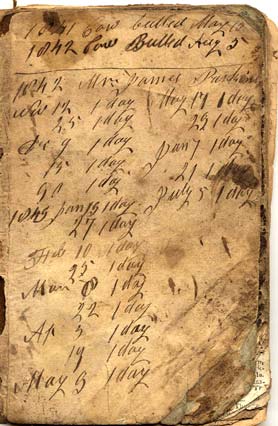 1841 Cow bulled May 13
1842 Cow Bulled Aug 5
1842 Mr James
12 1 day May 17 1 day
25 1 day 29 1 day
De 9 1 day Jan 7 1 day
15 1 day 21 1 day
30 1 day July 5 1 day
1843 Jan 13 1 day
27 1 day
Feb 10 1 day
25 1 day
Mar 8 1 day
22 1 day
Ap 3 1 day
19 1 day
May 3 1 day